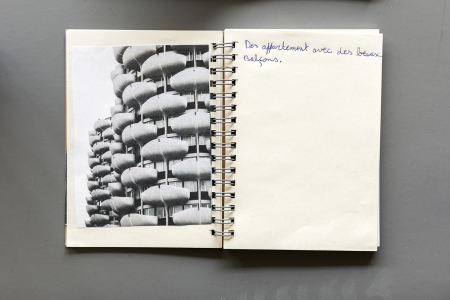 Des appartement avec des beaux
Balçons.